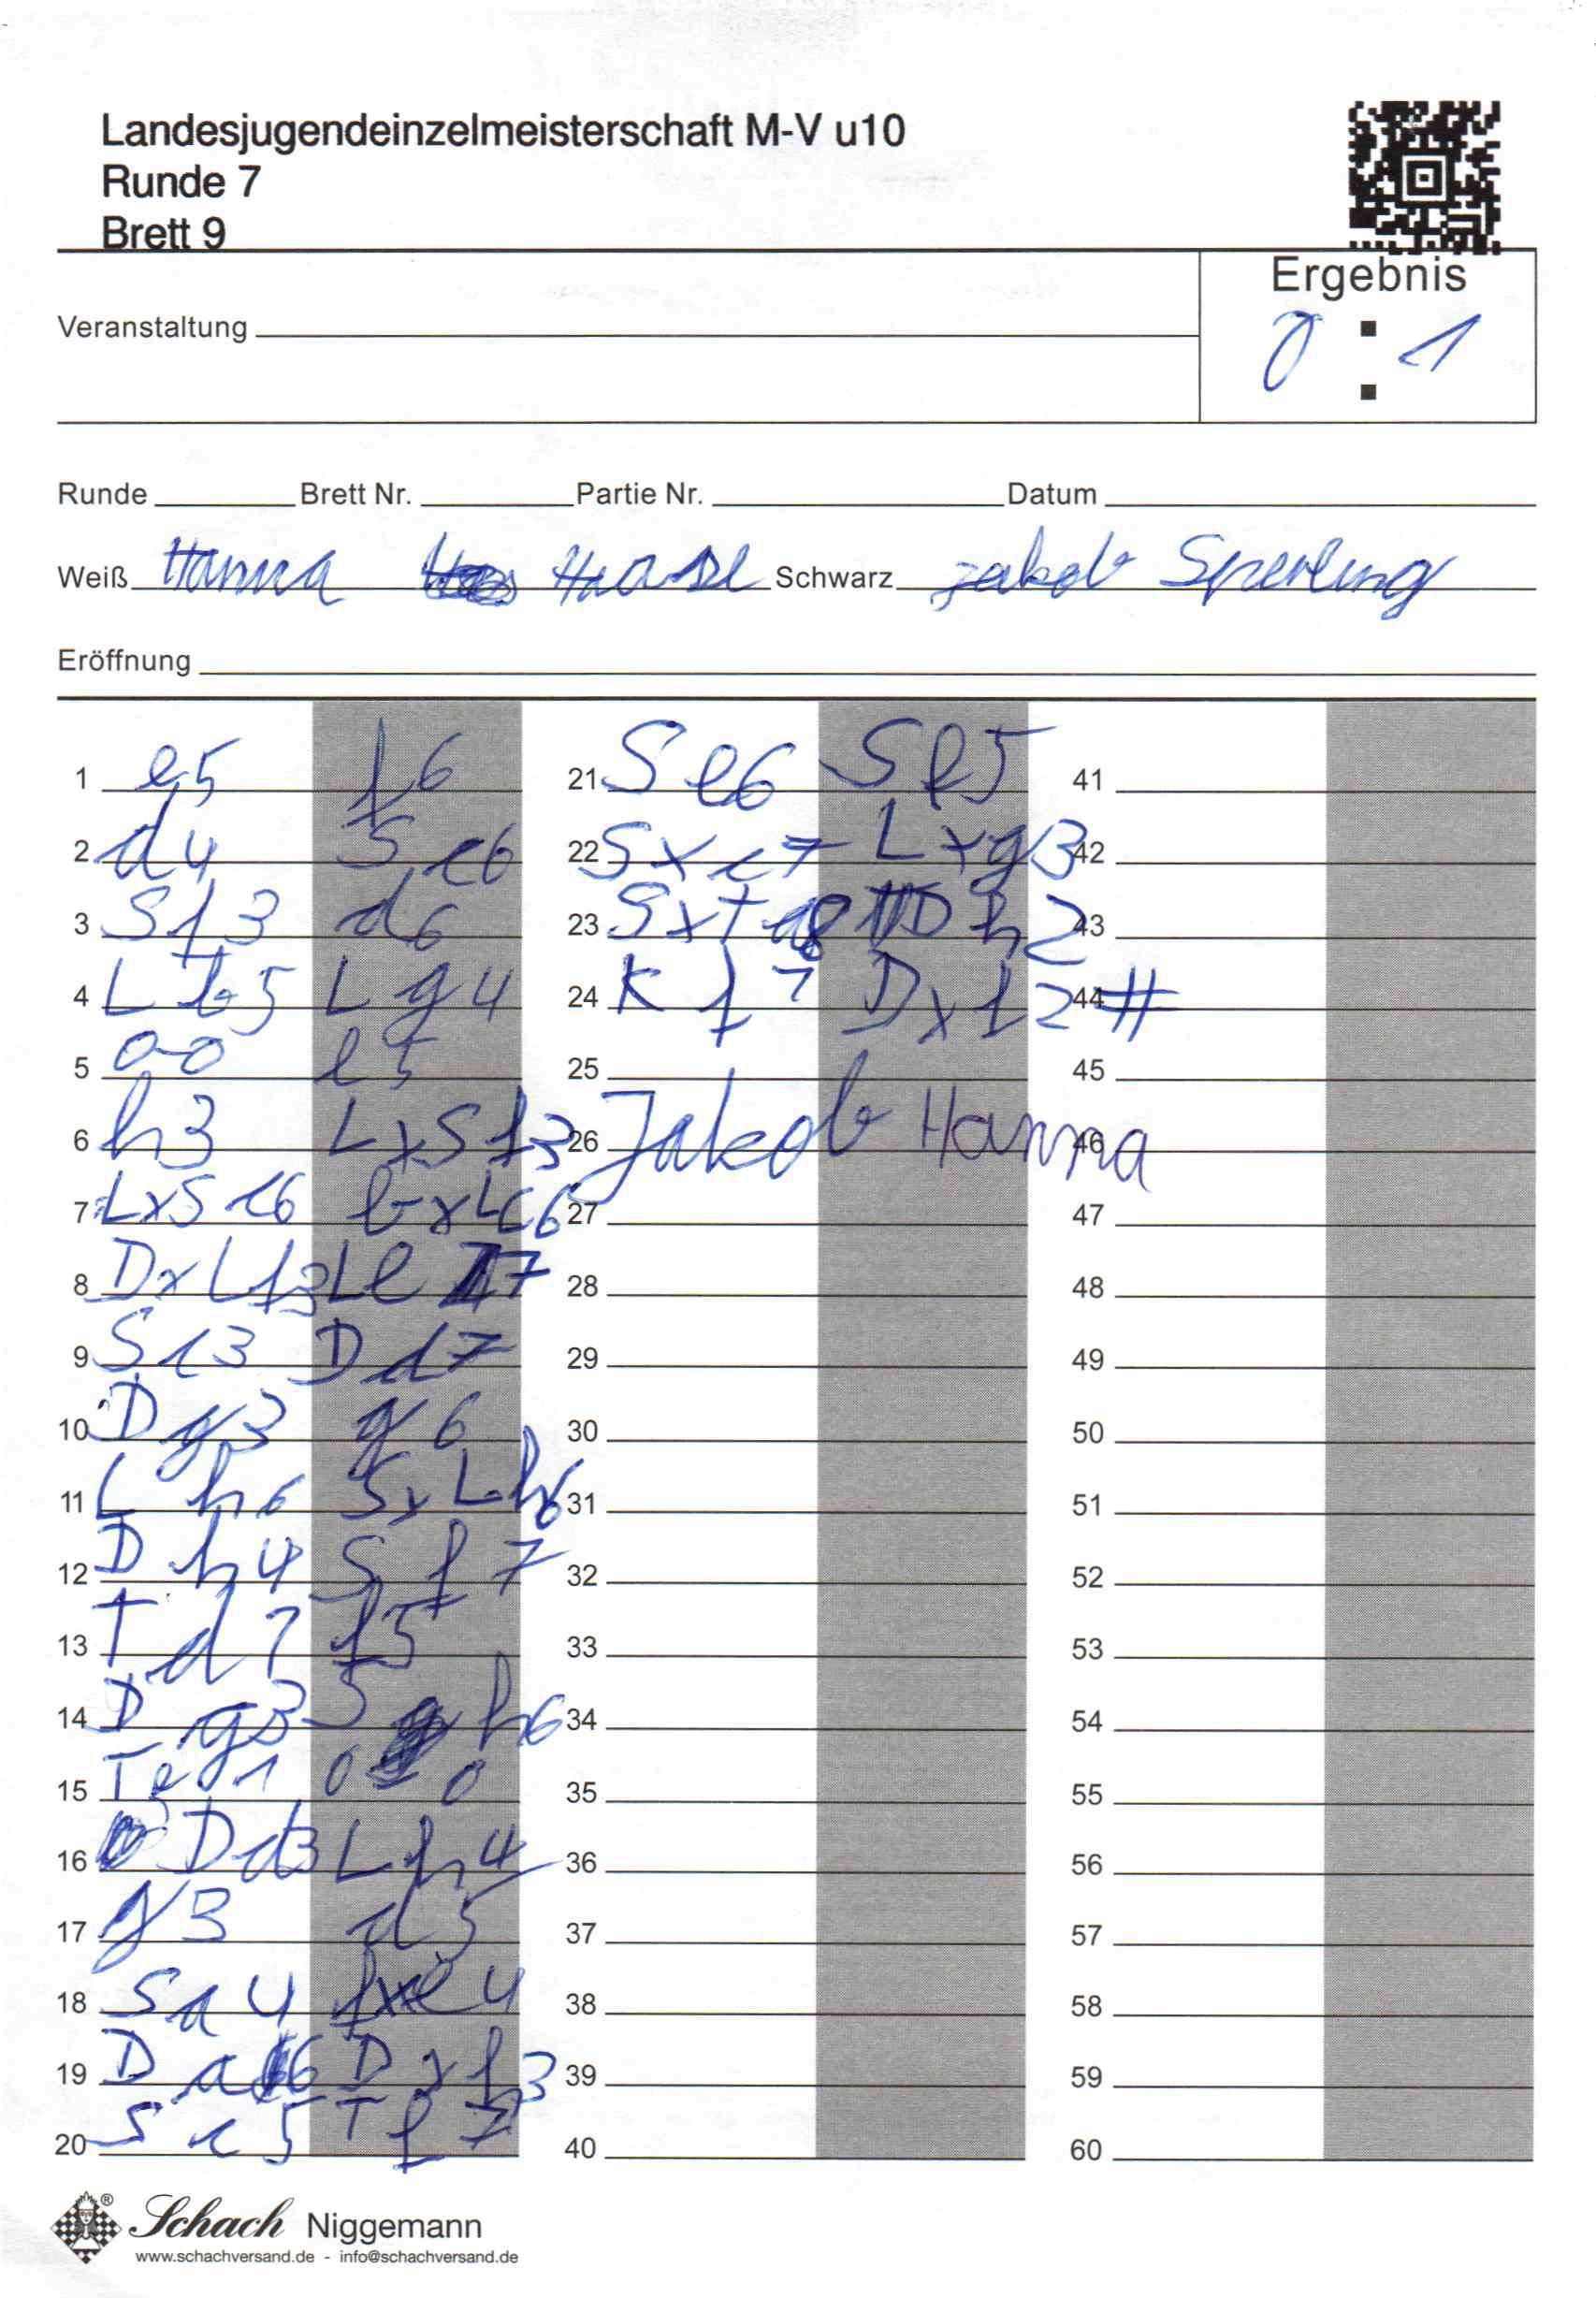 Landesjugendeinzelmeisterschaft M-V u10
Runde 7
Brett 9
Ergebnis
0 : 1
Veranstaltung
Runde Brett Nr. Partie Nr. Datum
Weiß Hanna Haase Schwarz Jakob Sperling
Eröffnung
1 e5 f6
2 d4 Sc6
3 Sf3 d6
4 Lb5 Lg4
5 0-0 e5
6 h3 LxSf3
7 LxSc6 bxLc6
8 DxLf3 Le7
9 Sc3 Dd7
10 Dg3 g6
11 Lh6 SxLh6
12 Dh4 Sf7
13 Td1 f5
14 Dg3 Sh6
15 Te1 0 0
16 Dd3 Lh4
17 g3 d5
18 Sa4 fxe4
19 Da6 Dxh3
20 Sc5 Tf7
21 Se6 Sf5
22 Sxc7 Lxg3
23 SxTa8 Dh2
24 Kf1 Dxf2#
25
26 Jakob Hanna
27
28
29
30
31
32
33
34
35
36
37
38
39
40
41
42
43
44
45
46
47
48
49
50
51
52
53
54
55
56
57
58
59
60
Schach Niggemann
www.schachversand.de - info@schachversand.de